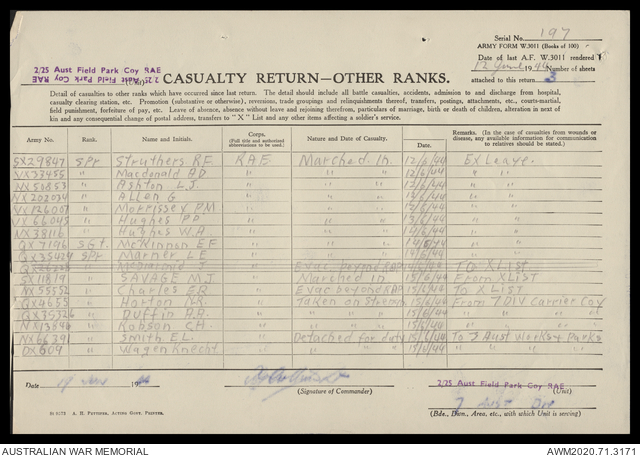 Serial No. 197
ARMY FORM W.3011 (Books of 100)
Date of last A.F. W.3011 rendered
12 June 1944 Number of sheets
attached to this return 3
2/25 Aust Field Park Coy RAE
2/25 Aust Field Park Coy RAE
CASUALTY RETURN—OTHER RANKS.
Detail of casualties to other ranks which have occurred since last return. The detail should include all battle casualties, accidents, admission to and discharge from hospital,
casualty clearing station, etc. Promotion (substantive or otherwise), reversions, trade groupings and relinquishments thereof, transfers, postings, attachments, etc., courts-martial,
field punishment, forfeiture of pay, etc. Leave of absence, absence without leave and rejoining therefrom, particulars of marriage, birth or death of children, alteration in next of
kin and any consequential change of postal address, transfers to "X" List and any other items affecting a soldier's service.
Army No. Rank. Name and Initials. Corps. (Full title and authorized abbreviations to be used.) Nature and Date of Casualty. Date. Remarks. (In the case of casualties from wounds or disease, any available information for communication to relatives should be stated.)
SX29847 Spr Struthers R.F. RAE Marched In 12/6/44 Ex Leave.
VX33455 " Macdonald A D " " " 12/6/44 " "
NX51853 " Ashton L.J. " " " 12/6/44 " "
NX202034 " Allen G " " " 14/6/44 " "
VX126007 " Morrissey P.M " " " 14/6/44 " "
VX66045 " Hughes P D " " " 15/6/44 " "
NX38116 " Hughes W.A. " " " 14/6/44 " "
QX7196 Sgt. McKinnon E F " " " 14/6/44 " "
QX35424 Spr Marner L E " " " 14/6/44 " "
" J " Evac beyond RAP 14/6/44 To X List
SX11819 " SAVAGE M.J. " Marched In 15/6/44 From X LIST
SX55552 " Charles E R " Evac beyond RAP 15/6/44 To X List
QX4655 " Horton N.R. " Taken on Strength 15/6/44 From 7 DIV Carrier Coy
QX35326 " Duffin A.A. " " " 15/6/44 " " "
NX13846 " Robson C.H. " " " 15/6/44 " " "
NX66391 " Smith E.L. " Detached for duty 15/6/44 To 3 Aust Works & Parks
DX609 " Wagenknecht " " " 15/6/44 " " "
Date 19 June 1944
(Signature of Commander)
2/25 Aust Field Park Coy RAE
(Unit)
7 Aust Div
(Bde., Divn., Area, etc., with which Unit is serving)
A. H. PETTIFER, ACTING GOVT. PRINTER.
AUSTRALIAN WAR MEMORIAL
AWM2020.71.3171